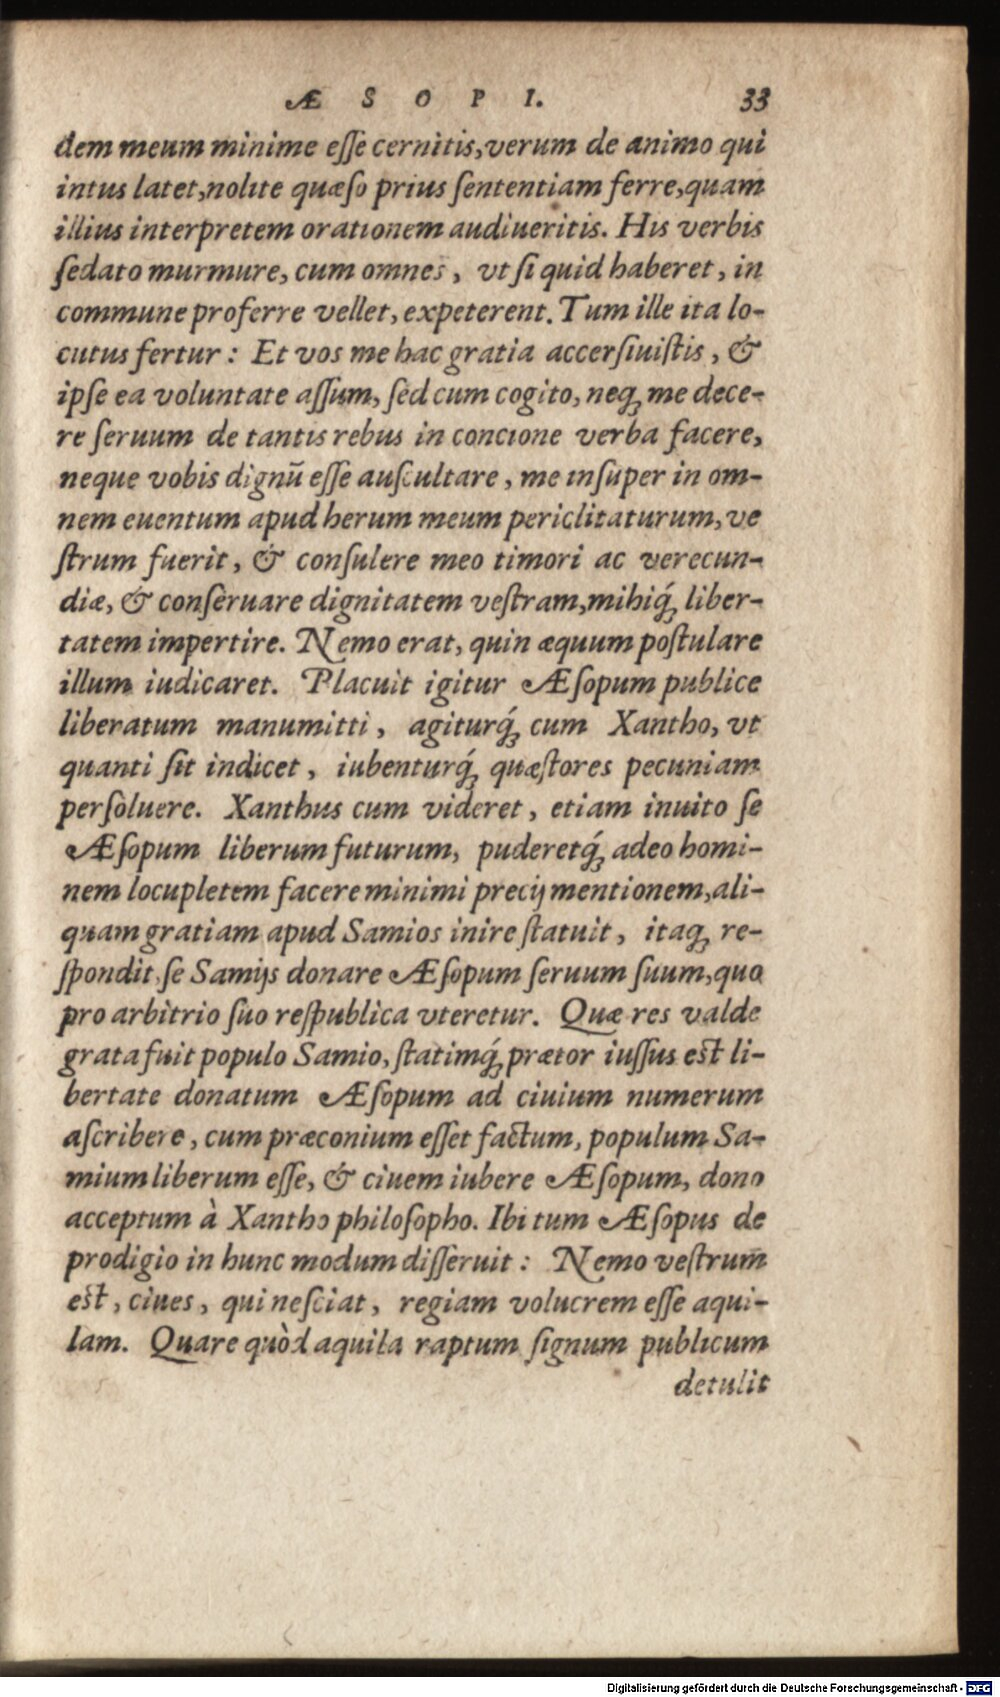 ÆSOPI. 33
dem meum minime eſſe cernitis,verum de animo qui
intus latet,nolite quæſo prius ſententiam ferre,quam
illius interpretem orationem audiueritis. His verbis
ſedato murmure, cum omnes, vt ſi quid haberet, in
commune proferre vellet, expeterent. Tum ille ita lo-
cutus fertur: Et vos me hac gratia accerſiuiſtis, &
ipſe ea voluntate aſſum, ſed cum cogito, neq; me dece-
re ſeruum de tantis rebus in concione verba facere,
neque vobis dignũ eſſe auſcultare, me inſuper in om-
nem euentum apud herum meum periclitaturum, ve
ſtrum fuerit, & conſulere meo timori ac verecun-
diæ, & conſeruare dignitatem veſtram,mihiq́; liber-
tatem impertire. Nemo erat, quin æquum poſtulare
illum iudicaret. Placuit igitur Æſopum publice
liberatum manumitti, agiturq́; cum Xantho, vt
quanti ſit indicet, iubenturq́; quæſtores pecuniam
perſoluere. Xanthus cum videret, etiam inuito ſe
Æſopum liberum futurum, puderetq́; adeo homi-
nem locupletem facere minimi precij mentionem,ali-
quam gratiam apud Samios inire ſtatuit, itaq; re-
ſpondit,ſe Samijs donare Æſopum ſeruum ſuum,quo
pro arbitrio ſuo reſpublica vteretur. Quæ res valde
grata fuit populo Samio, ſtatimq́; prætor iuſſus eſt li-
bertate donatum Æſopum ad ciuium numerum
aſcribere, cum præconium eſſet factum, populum Sa-
mium liberum eſſe, & ciuem iubere Æſopum, dono
acceptum à Xantho philoſopho. Ibi tum Æſopus de
prodigio in hunc modum diſſeruit: Nemo veſtrum
eſt, ciues, qui neſciat, regiam volucrem eſſe aqui-
lam. Quare quòd aquila raptum ſignum publicum
detulit
Digitalisierung gefördert durch die Deutsche Forschungsgemeinschaft - DFG